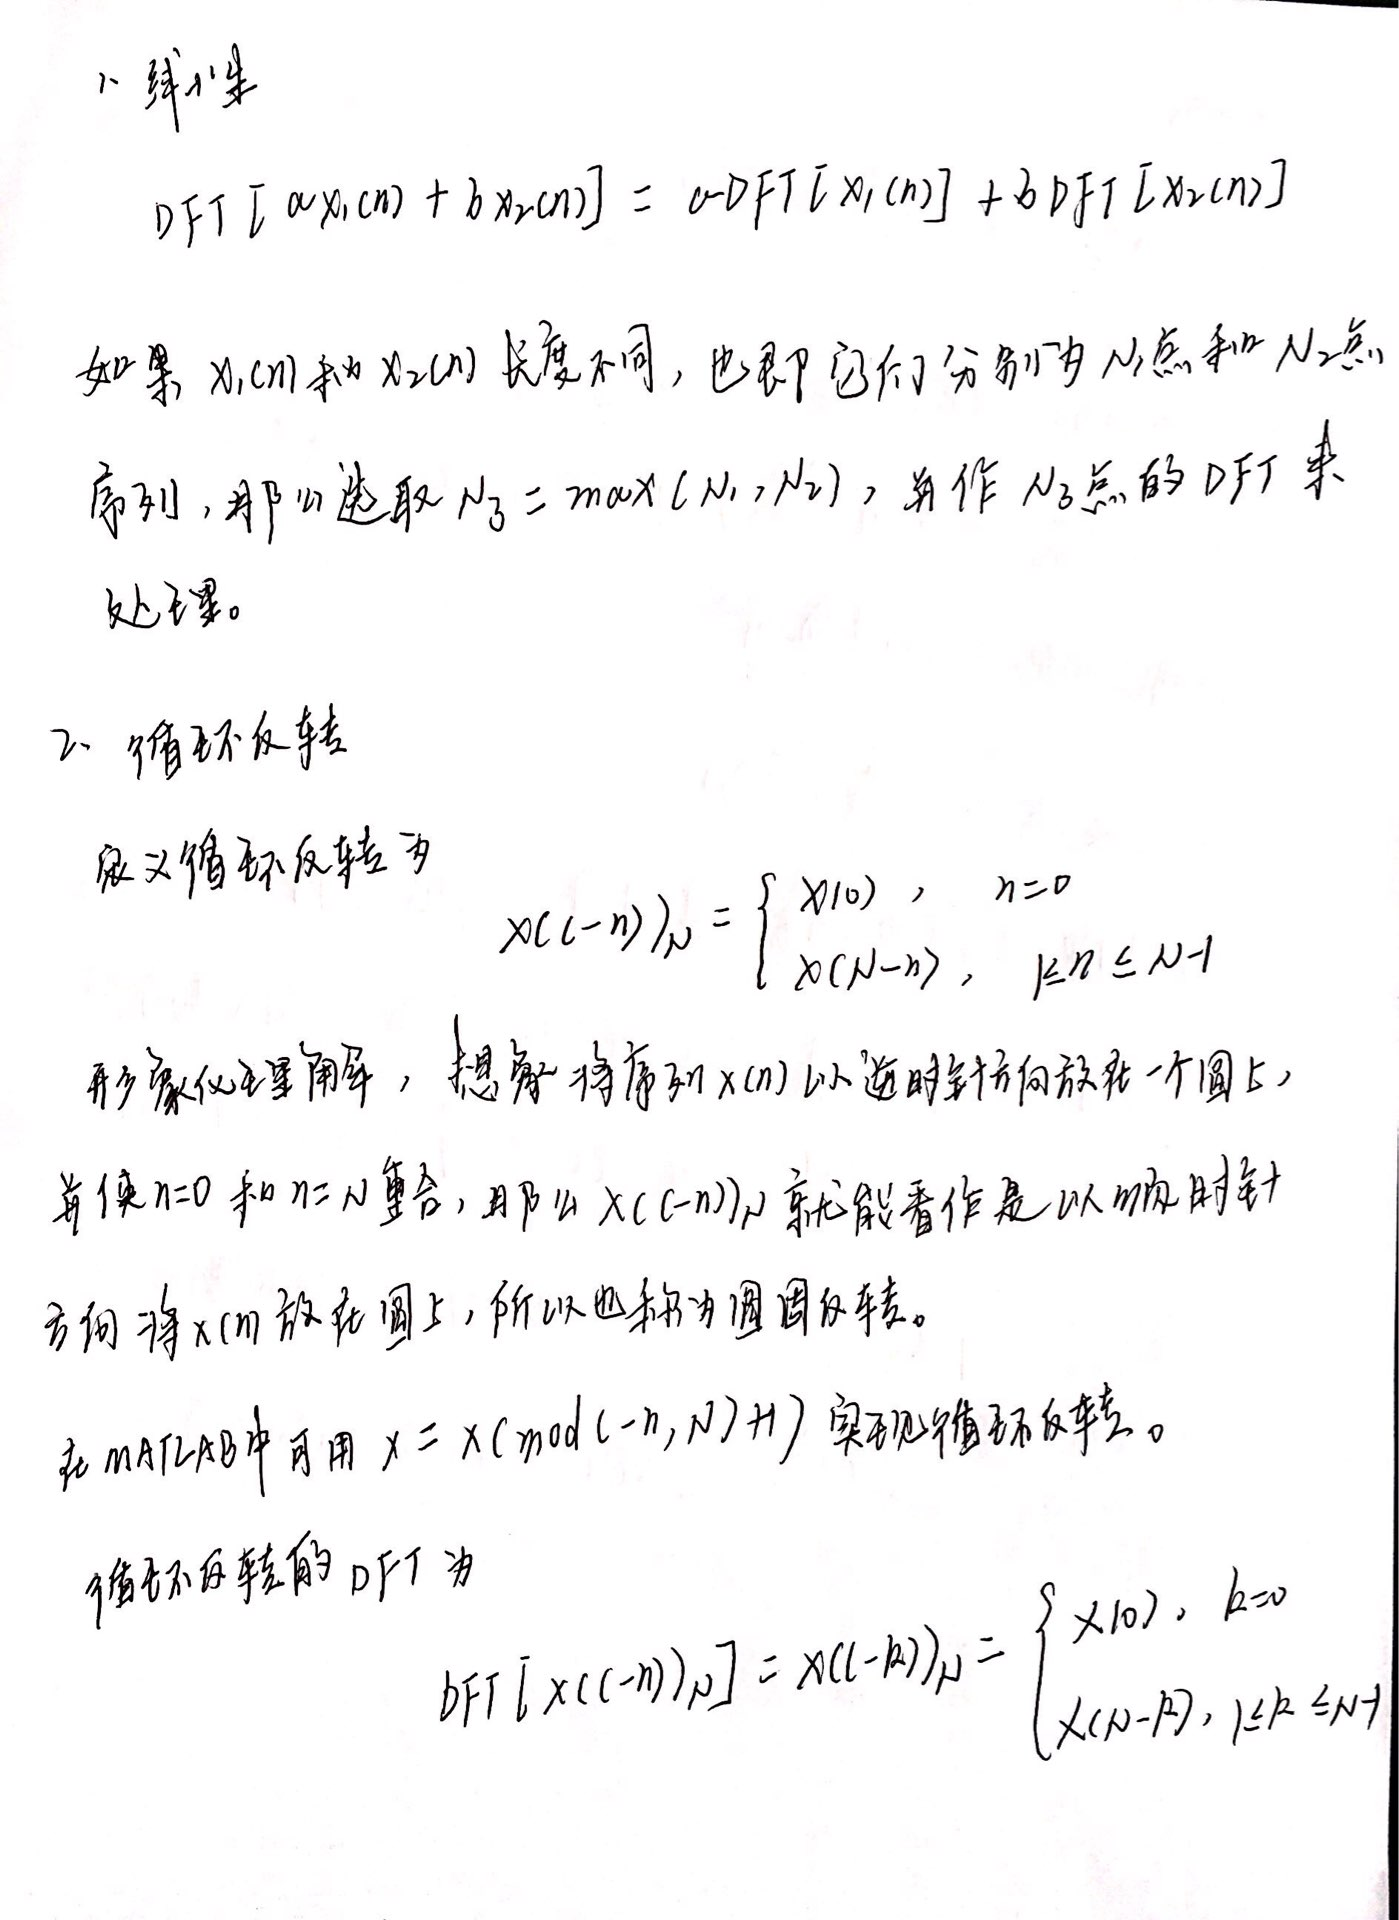 1、线性
DFT[ax₁(n) + bx₂(n)] = aDFT[x₁(n)] + bDFT[x₂(n)]
如果 x₁(n) 和 x₂(n) 长度不同，也即它们分别为 N₁点和 N₂点
序列，那么选取 N₃ = max(N₁, N₂)，并作 N₃点的 DFT 来
处理。
2、循环反转
定义循环反转为
x((-n))_N = { x(0), n=0
x(N-n), 1≤n≤N-1
形象化理解，想象将序列x(n)以逆时针方向放在一个圆上，
并使n=0和n=N重合，那么x((-n))_N就能看作是以顺时针
方向将x(n)放在圆上，所以也称为圆周反转。
在MATLAB中可用 x = x(mod(-n,N)+1) 实现循环反转。
循环反转的DFT为
DFT[x((-n))_N] = X((-k))_N = { X(0), k=0
X(N-k), 1≤k≤N-1